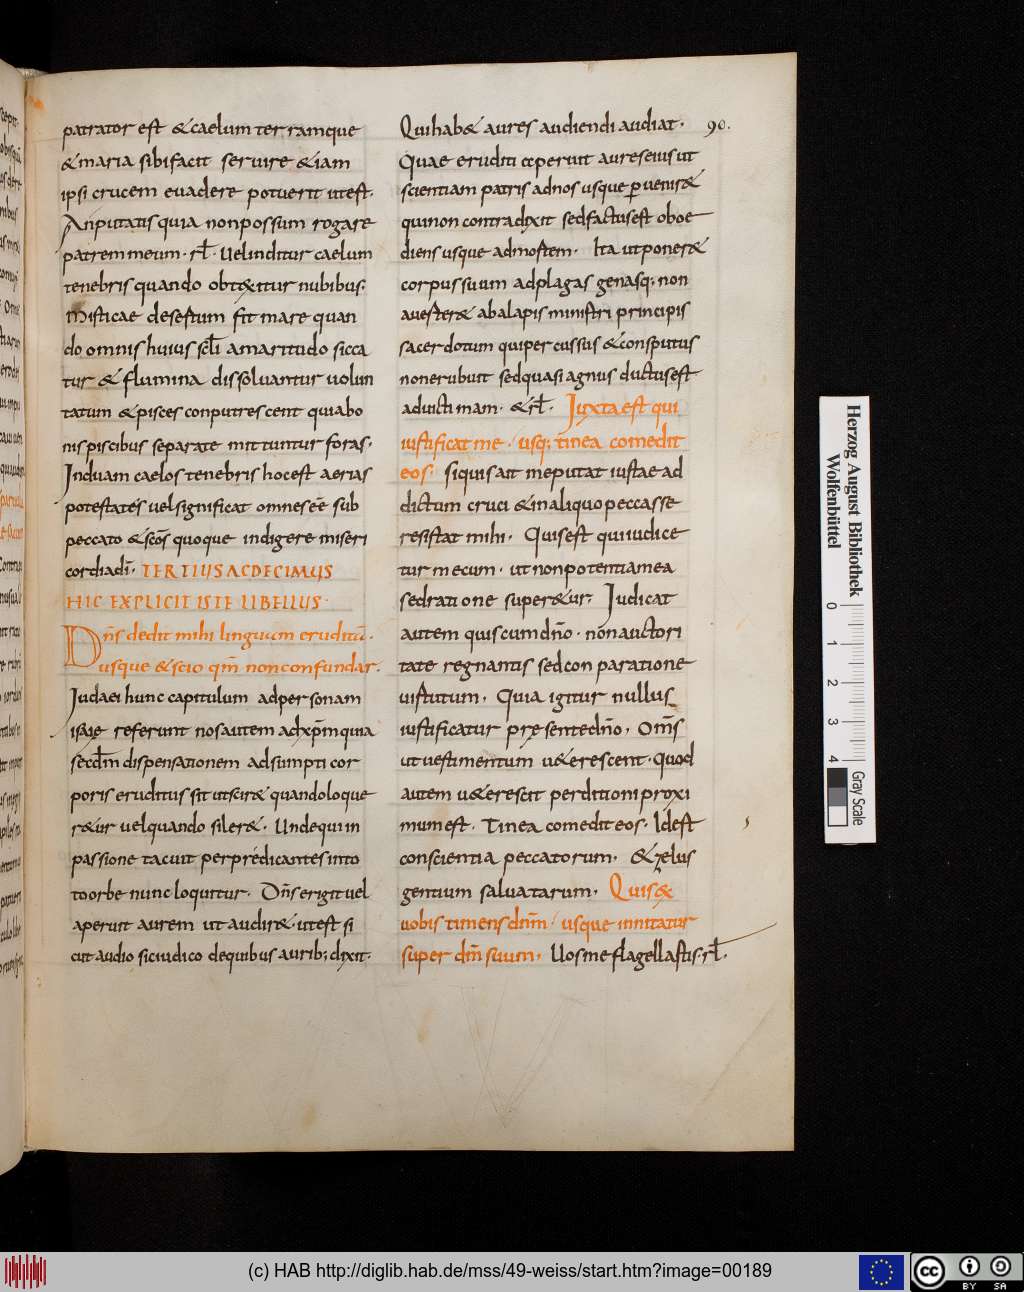 patrator est &caelum terramque
&maria sibi facit servire &iam
ipsi crucem evadere potuerit utest.
An putatis quia non possum rogare
patrem meum. rl. Uel inditur caelum
tenebris quando obtexitur nubibus;
Misticae desestum fit mare quan
do omnis huius scli amaritudo sicca
tur & flumina dissolvantur volun
tatum &pisces conputrescent quia bo
nis piscibus separate mittuntur foras.
Induam caelos tenebris hoc est aerias
potestates vel significat omnes eē sub
peccato &scōs quoque indigere miseri
cordia di. TERTIUS AC DECIMUS
HIC EXPLICIT ISTE LIBELLUS.
Dns dedit mihi linguam eruditā.
usque &scio qm non confundar.
Judaei hunc capitulum ad personam
isaiae referunt nos autem ad xpm quia
secdm dispensationem adsumpti cor
poris eruditus sit ut scir& quando loque
r&ur vel quando siler&. Unde qui in
passione tacuit per predicantes in to
to orbe nunc loquitur. Dns erigit vel
aperuit aurem ut audir&. utest si
cut audio sic iudico de quibus aurib; dixit.
Qui hab& aures audiendi audiat. 90.
Quae eruditi ceperunt aures eius ut
scientiam patris ad nos usque pvenir&
qui non contradixit sed factus est oboe
diens usque ad mortem. Ita ut poner&
corpus suum ad plagas genasq; non
averter& ab alapis ministri principis
sacerdotum qui percussus &consputus
non erubuit sed quasi agnus ductus est
ad victimam. &rl. Juxta est qui
iustificat me. usq; tinea comedit
eos. si quis ait me putat iustae ad
dictum cruci &in aliquo peccasse
resistat mihi. Quis est qui iudice
tur mecum. ut non potentia mea
sed ratione super&ur; Judicat
autem quis cum dno. non auctori
tate regnantis sed conparatione
virtutum. Quia igitur nullus
iustificatur praesente dno. Oms
ut vestimentum v&erescent. quod
autem v&erescit perditioni proxi
mum est. Tinea comedit eos. Idest
conscientia peccatorum. &zelus
gentium salvatarum. Quis &
vobis timens dnm. usque innitatur
super dm suum. Uos me flagellastis. rl.
Herzog August Bibliothek
Wolfenbüttel
0 1 2 3 4
Gray Scale
(c) HAB http://diglib.hab.de/mss/49-weiss/start.htm?image=00189
cc BY SA